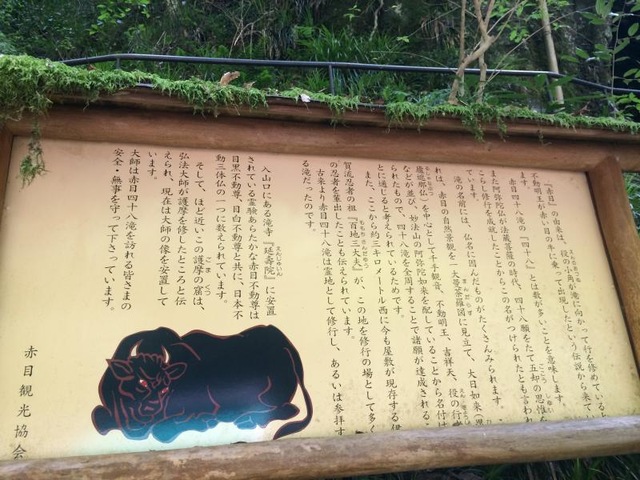 『赤目』の由来は、役の小角が滝に向かって行を修めていると
不動明王が赤い目の牛に乗って出現したという伝説から来て
います。
赤目四十八滝の「四十八」とは数が多いことを意味します。
また阿弥陀仏が法蔵菩薩の時代、四十八願をたて五却の思惟を
こらし修行を成就したことからこの名がつけられたとも言われ
れています。
滝の名前には、仏名に因んだものがたくさんみられます。
れは、赤目の自然景観を一大曼荼羅図に見立て、大日如来
盧遮那仏)を中心として千手観音、不動明王、吉祥天、役の行者
などが並び、妙法山の阿弥陀如来を配していることから名付け
られたもので、四十八滝を全周することで諸願が達成されるこ
とに通ると考えられているためです。
また、ここから約三キロメートル西に今も屋敷が現存する伊
賀流忍者の祖『百地三太夫』が、この地を修行の場として多く
の忍者を輩出したことも伝えられています。
古来より赤目四十八滝は霊地として修行し、あるいは参拝す
る滝だったのです。
入山口にある滝寺『延壽院』に安置
されている霊験あらたかな赤目不動尊は
目黒不動尊、目白不動尊と共に、日本不
動三体仏の一つに数えられています。
そして、ほど近いこの護摩の窟は、
弘法大師が護摩を修したところと伝
えられ、現在は大師の像を安置して
います。
大師は赤目四十八滝を訪れる皆さまの
安全・無事を守って下さっています。
赤目観光協会